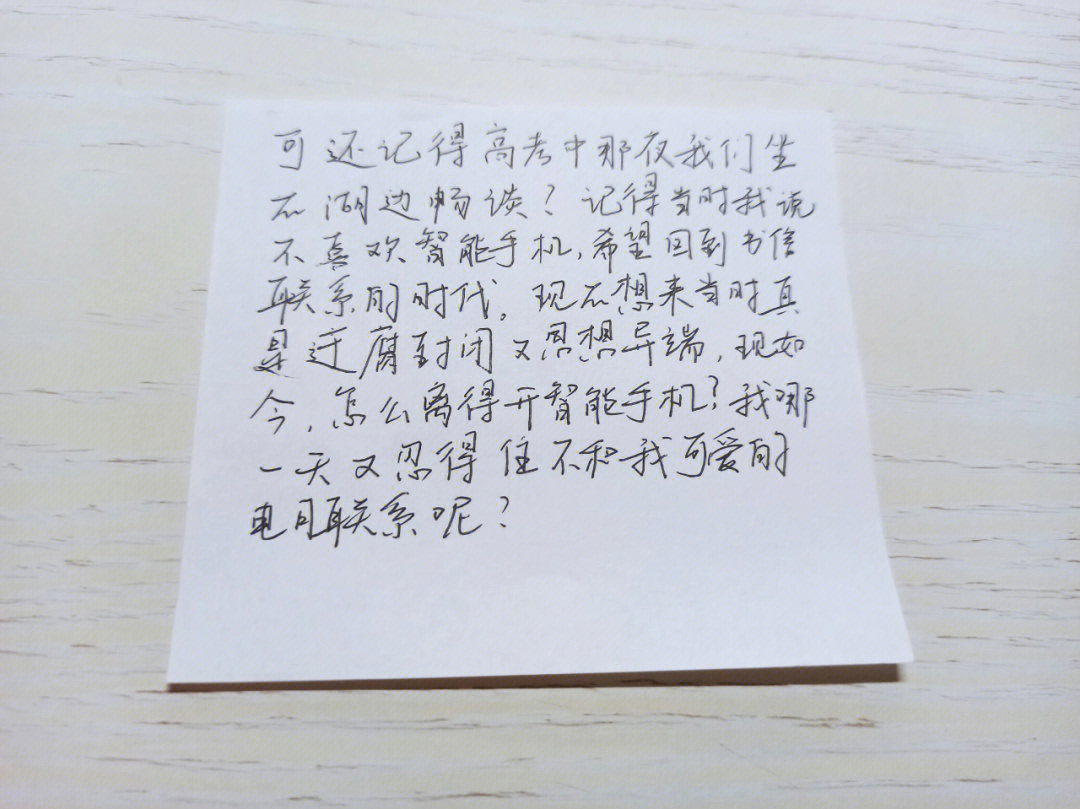 可还记得高考中那夜我们坐
在湖边畅谈？记得当时我说
不喜欢智能手机,希望回到书信
联系的时代。现在想来当时真
是迂腐封闭又思想异端,现如
今,怎么离得开智能手机？我哪
一天又忍得住不和我可爱的
电月联系呢？